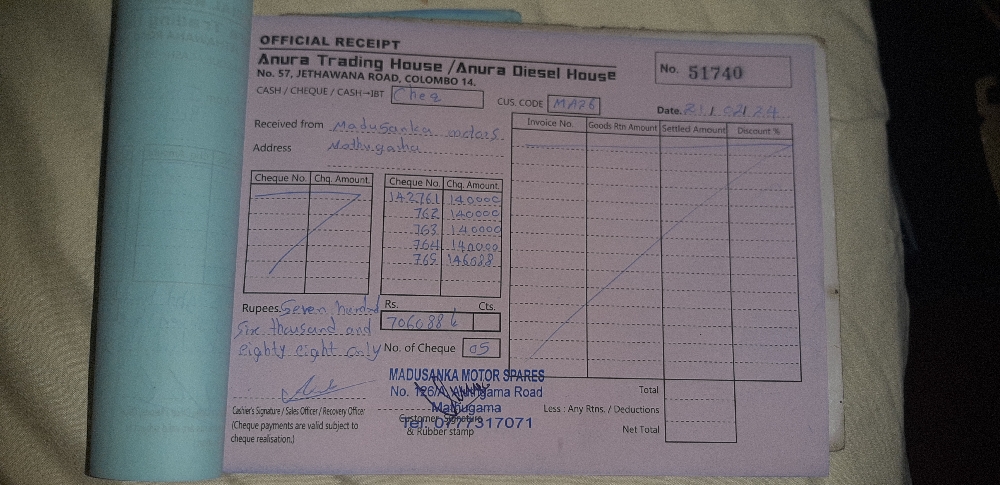 OFFICIAL RECEIPT
Anura Trading House / Anura Diesel House
No. 57, JETHAWANA ROAD, COLOMBO 14.
No. 51740
CASH / CHEQUE / CASH→IBT Cheq
CUS. CODE MA26
Date. 21 / 02/ 24
Received from Madusanka motors
Address Mathugama
Cheque No. Chq. Amount
Cheque No. Chq. Amount
142761 140000
762 140000
763 140000
764 140000
765 146088
Invoice No. Goods Rtn Amount Settled Amount Discount %
Rupees. Seven hundred
Six thousand and
eighty eight only
Rs. Cts.
706088
No. of Cheque 05
MADUSANKA MOTOR SPARES
No. 126/A, Aluthgama Road
Mathugama
Tel: 0777317071
Cashier's Signature / Sales Officer / Recovery Officer
(Cheque payments are valid subject to
cheque realisation.)
Customer Signature
& Rubber stamp
Total
Less : Any Rtns. / Deductions
Net Total